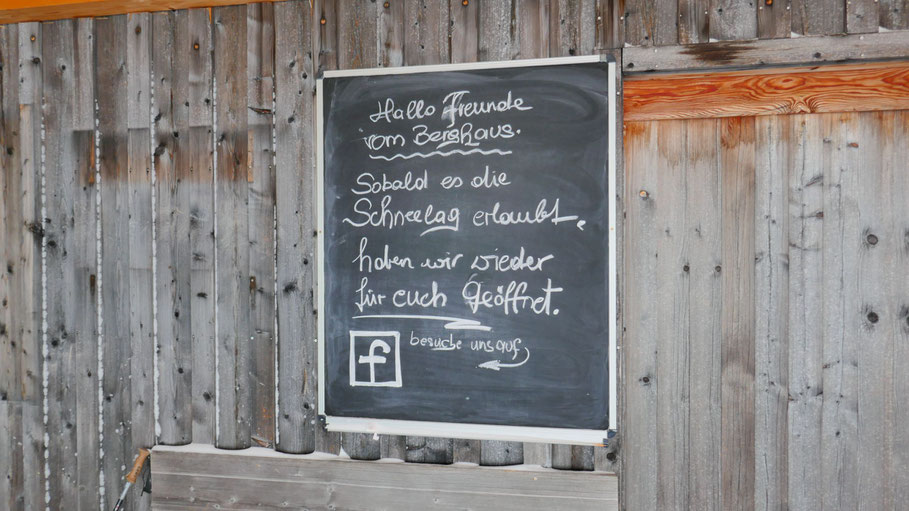 Hallo Freunde
vom Berghaus.
Sobald es die
Schneelag erlaubt,
haben wir wieder
für euch Geöffnet.
f besuche uns auf